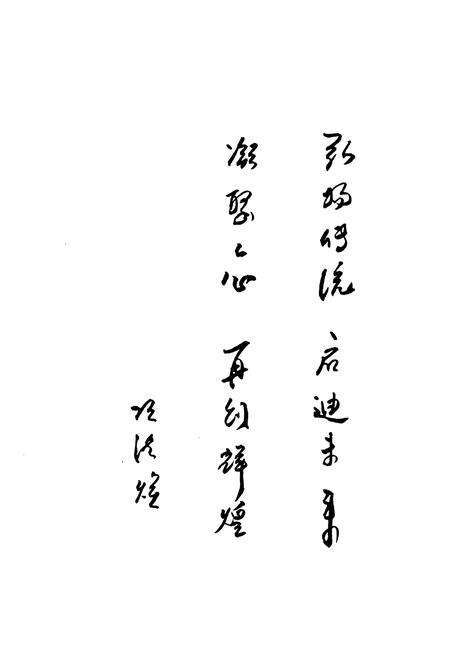 弘扬传统 启迪未来
凝聚人心 再创辉煌
项淮煊